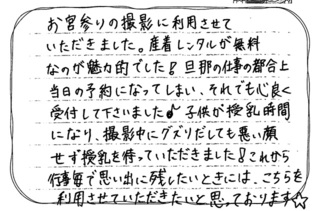 お宮参りの撮影に利用させて
いただきました。産着レンタルが無料
なのが魅力的でした! 旦那の仕事の都合上
当日の予約になってしまい、それでも心良く
受付して下さいました♪ 子供が授乳時間
になり、撮影中にグズりだしても悪い顔
せず授乳を待っていただきました! これから
行事毎で思い出に残したいときには、こちらを
利用させていただきたいと思っております☆